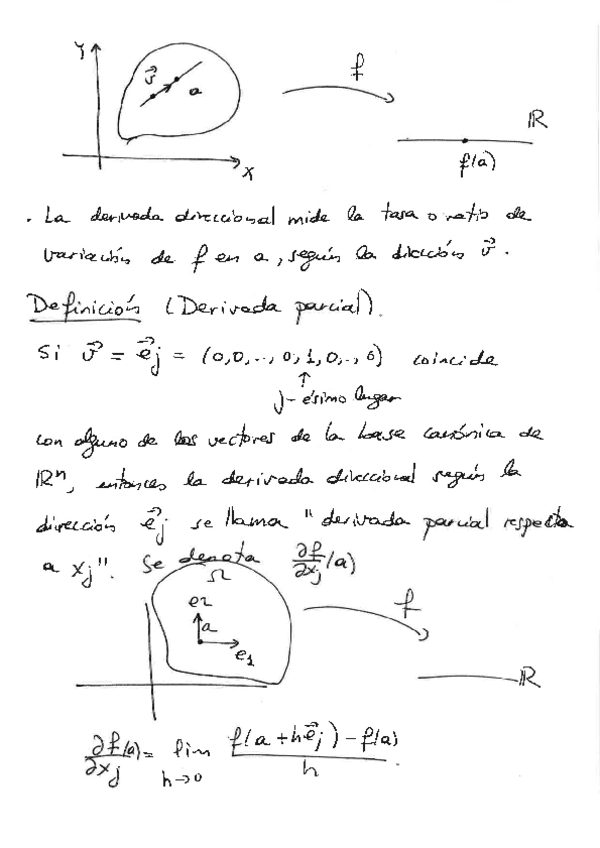 Y
v⃗
a
f
ℝ
x
f(a)
. La derivada direccional mide la tasa o ratio de
variación de f en a, según la dirección v⃗.
Definición (Derivada parcial).
Si v⃗ = e⃗j = (0,0,..,0,1,0,..,0) coincide
↑
j-ésimo lugar
con alguno de los vectores de la base canónica de
ℝⁿ, entonces la derivada direccional según la
dirección e⃗j se llama "derivada parcial respecto
a xj". Se denota ∂f/∂xj (a)
Ω
e2
a
e1
f
ℝ
∂f/∂xj (a) = lim h→0 (f(a + he⃗j) - f(a))/h.